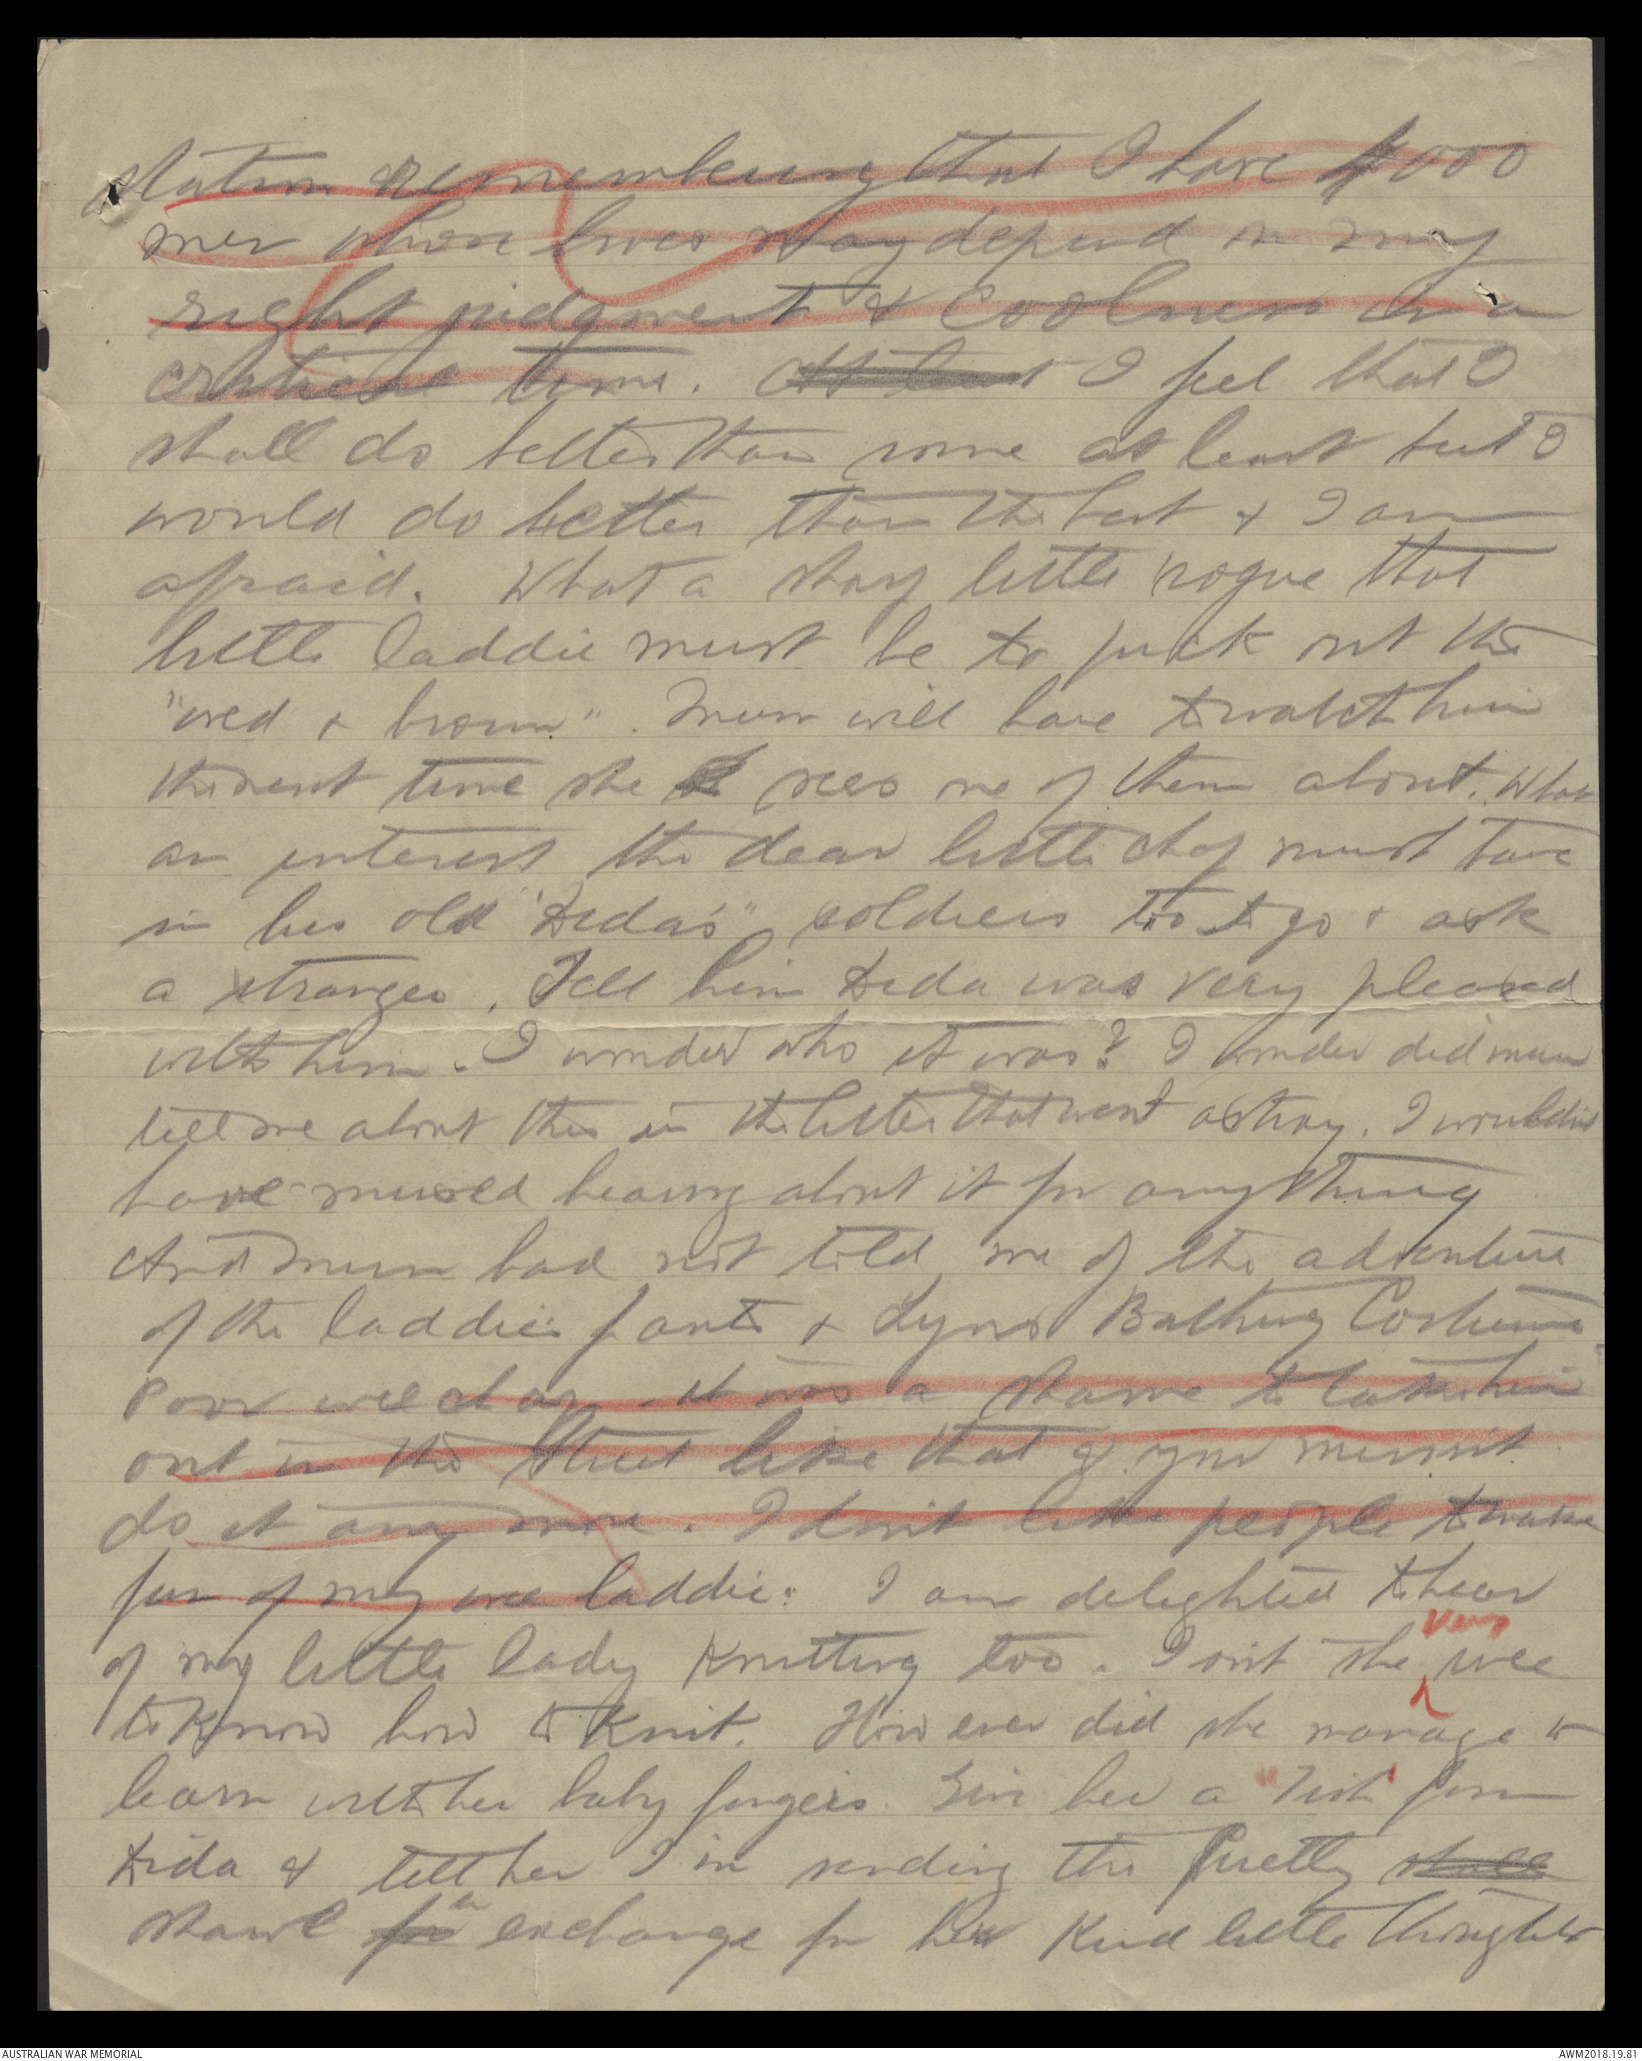 station remembering that I have 4000
men whose lives may depend on my
right judgment & Coolness in a
critical time. At least I feel that I
shall do better than some at least but I
would do better than the best & I am
afraid. What a sharp little rogue that
little laddie must be to pick out the
"wed & brown". Mum will have to watch him
the next time she sees one of them about. What
an interest the dear little chap must have
in his old "Dida's" soldiers too to go & ask
a stranger. Tell him Dida was very pleased
with him. I wonder who it was? I wonder did mum
tell me about this in the letter that went astray. I wouldn't
have missed hearing about it for anything
And mum had not told me of the adventure
of the laddie's pants & Lyn's Bathing Costume
Poor wee chap it was a shame to take him
out in the street like that & you musn't
do it any more. I don't like people to make
fun of my wee laddie. I am delighted to hear
of my little lady Knitting too. Isn't she very wee
to know how to Knit. How ever did she manage to
learn with her baby fingers. Give her a "Tish" from
Dida & tell her I'm sending the pretty shall
shawl for in exchange for her Kind little thoughts
AUSTRALIAN WAR MEMORIAL
AWM2018.19.81